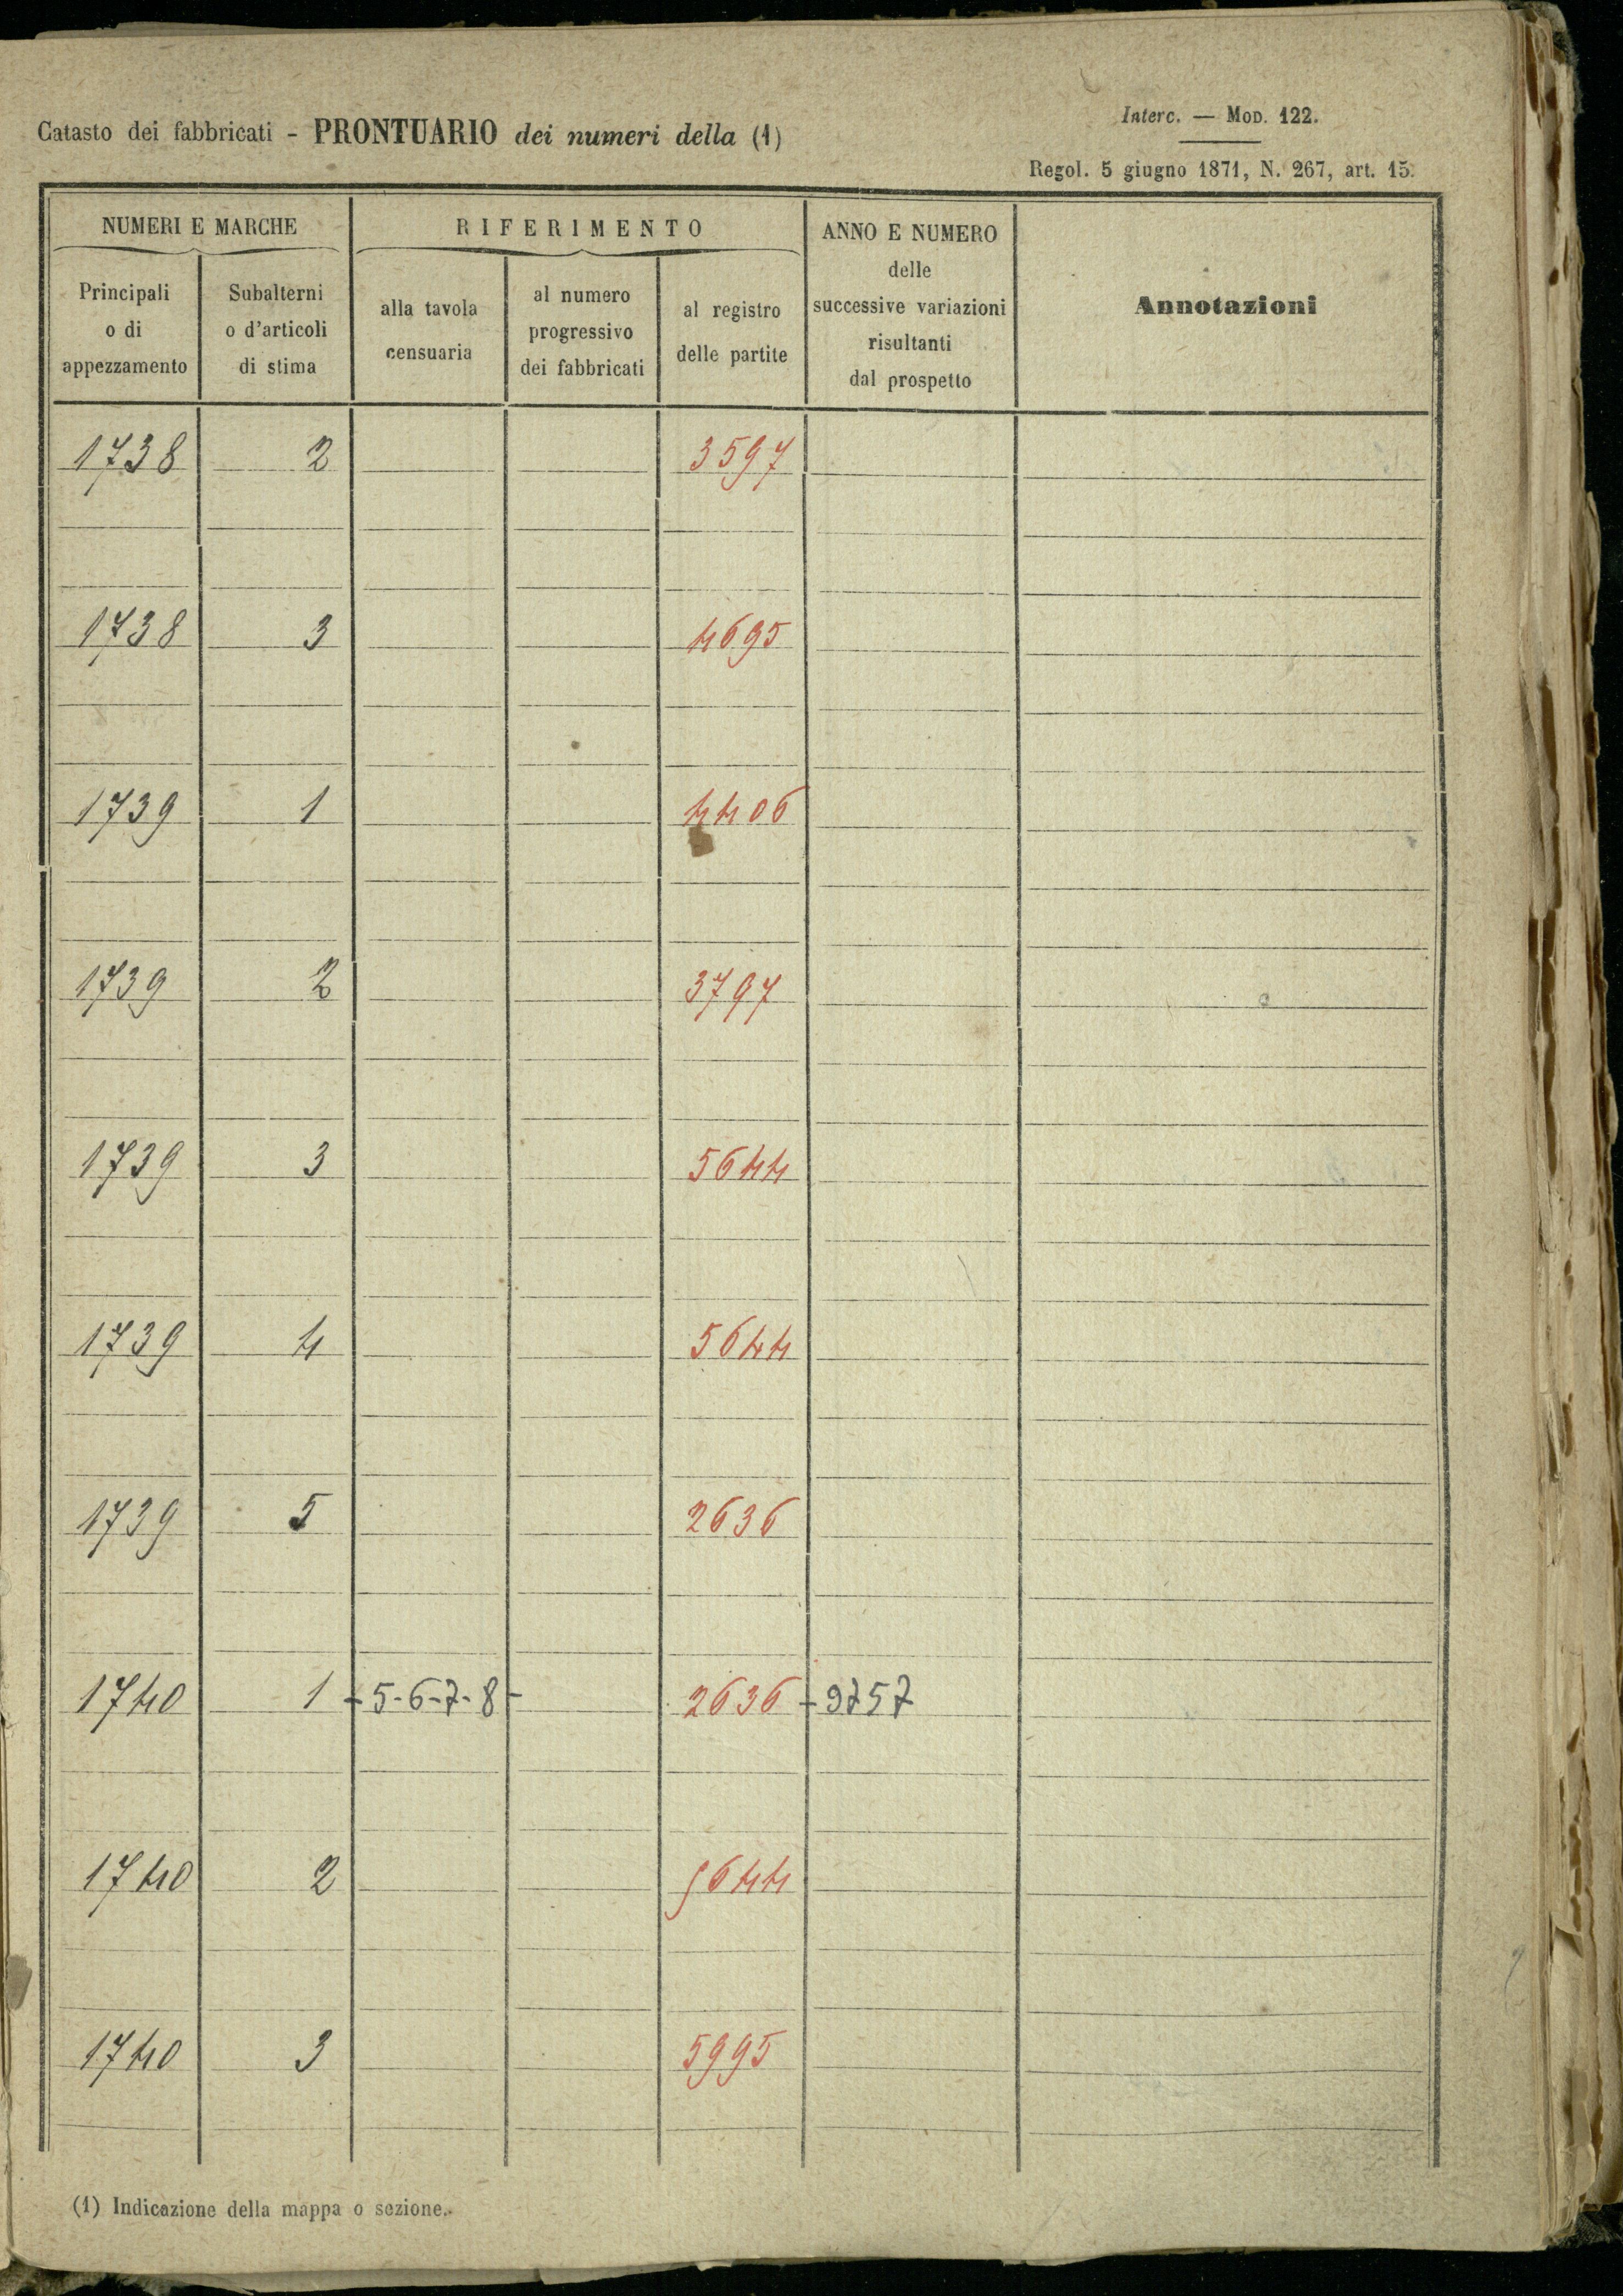 Catasto dei fabbricati - PRONTUARIO dei numeri della (1)
Interc. — Mod. 122.
Regol. 5 giugno 1871, N. 267, art. 15.
NUMERI E MARCHE
RIFERIMENTO
ANNO E NUMERO
delle
successive variazioni
risultanti
dal prospetto
Annotazioni
Principali
o di
appezzamento
Subalterni
o d'articoli
di stima
alla tavola
censuaria
al numero
progressivo
dei fabbricati
al registro
delle partite
1738 2 3597
1738 3 4695
1739 1 4406
1739 2 3797
1739 3 5644
1739 4 5644
1739 5 2636
1740 1 - 5-6-7-8 - 2636 - 9757
1740 2 5644
1740 3 5995
(1) Indicazione della mappa o sezione.